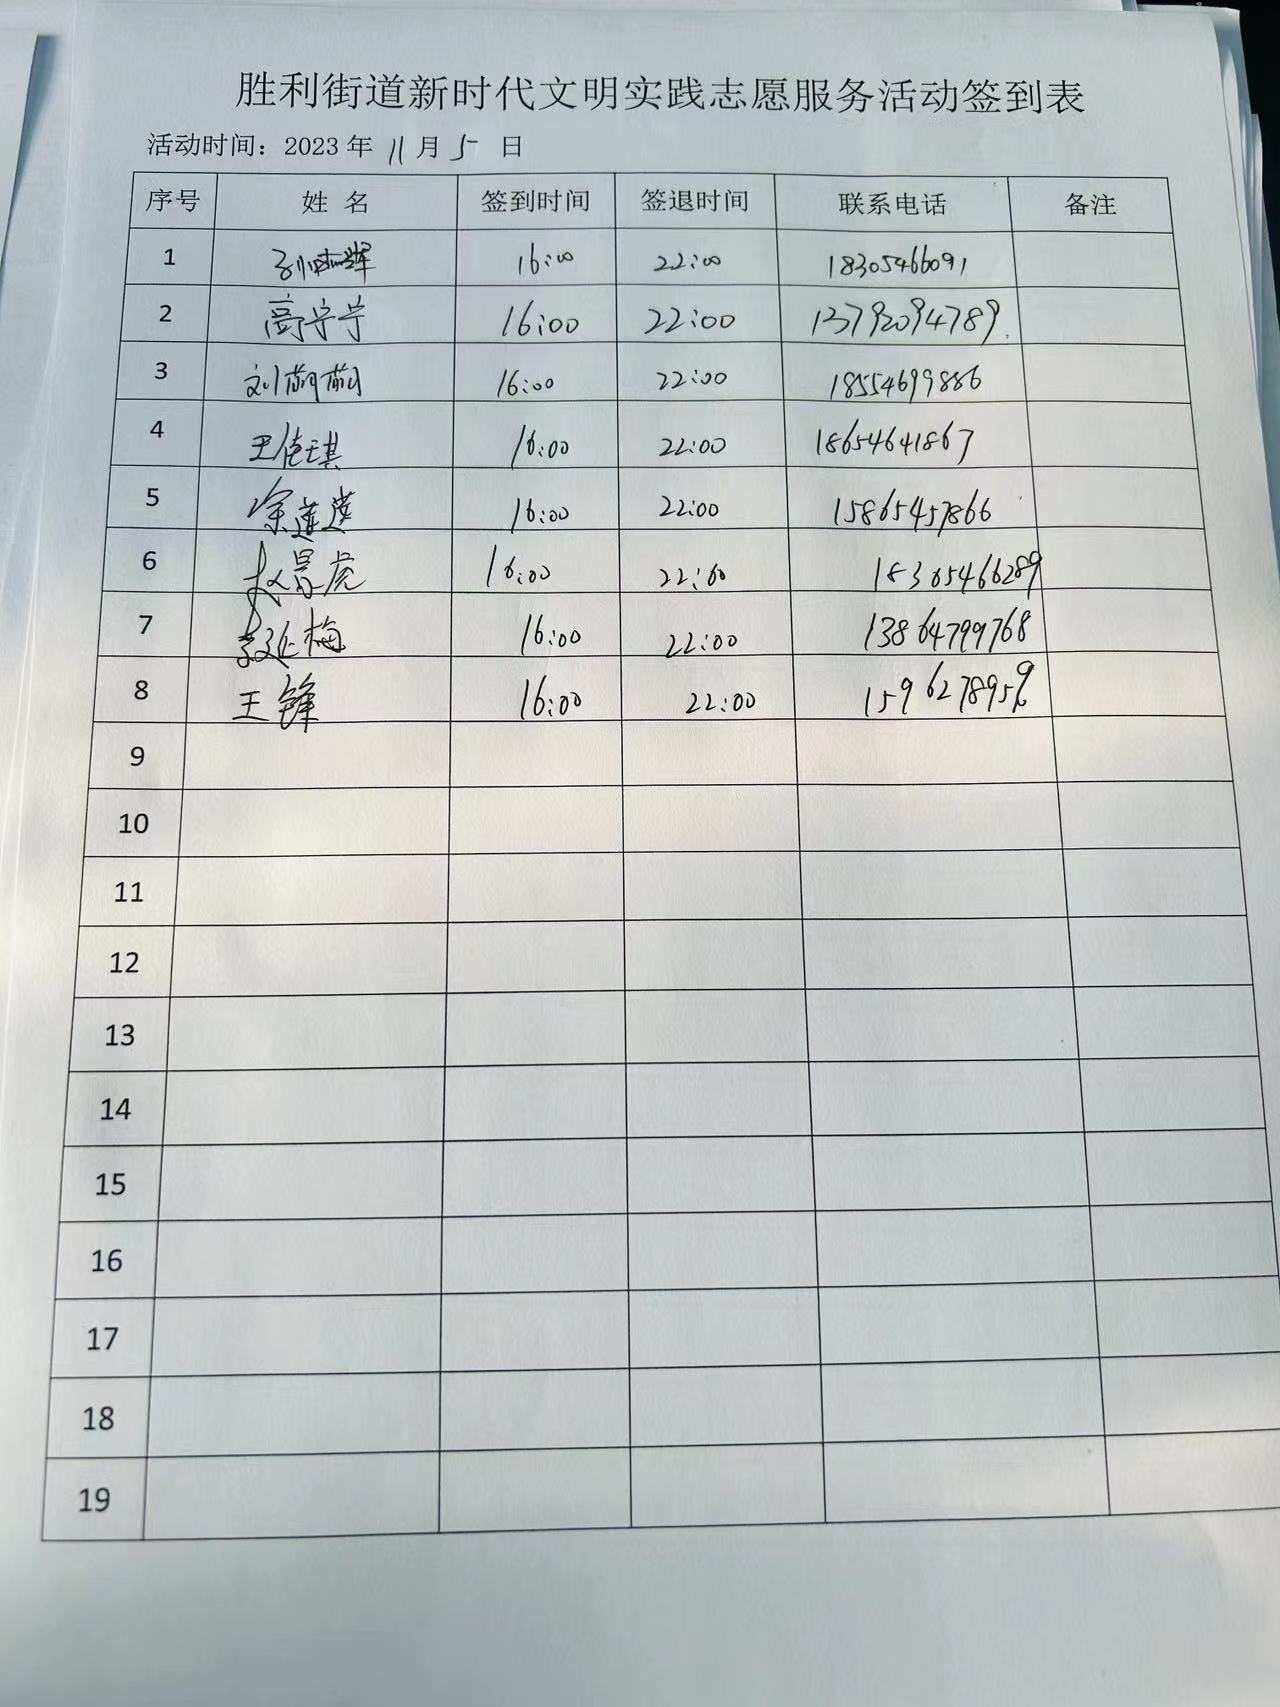 胜利街道新时代文明实践志愿服务活动签到表
活动时间：2023 年 11 月 5 日
序号 姓 名 签到时间 签退时间 联系电话 备注
1 16:00 22:00 18305466091
2 高宁宁 16:00 22:00 13792094789
3 刘萌萌 16:00 22:00 18554699886
4 王佳琪 16:00 22:00 18654641867
5 徐莲莲 16:00 22:00 15865457866
6 赵景虎 16:00 22:00 18365466289
7 赵延梅 16:00 22:00 13864799768
8 王锋 16:00 22:00
9
10
11
12
13
14
15
16
17
18
19